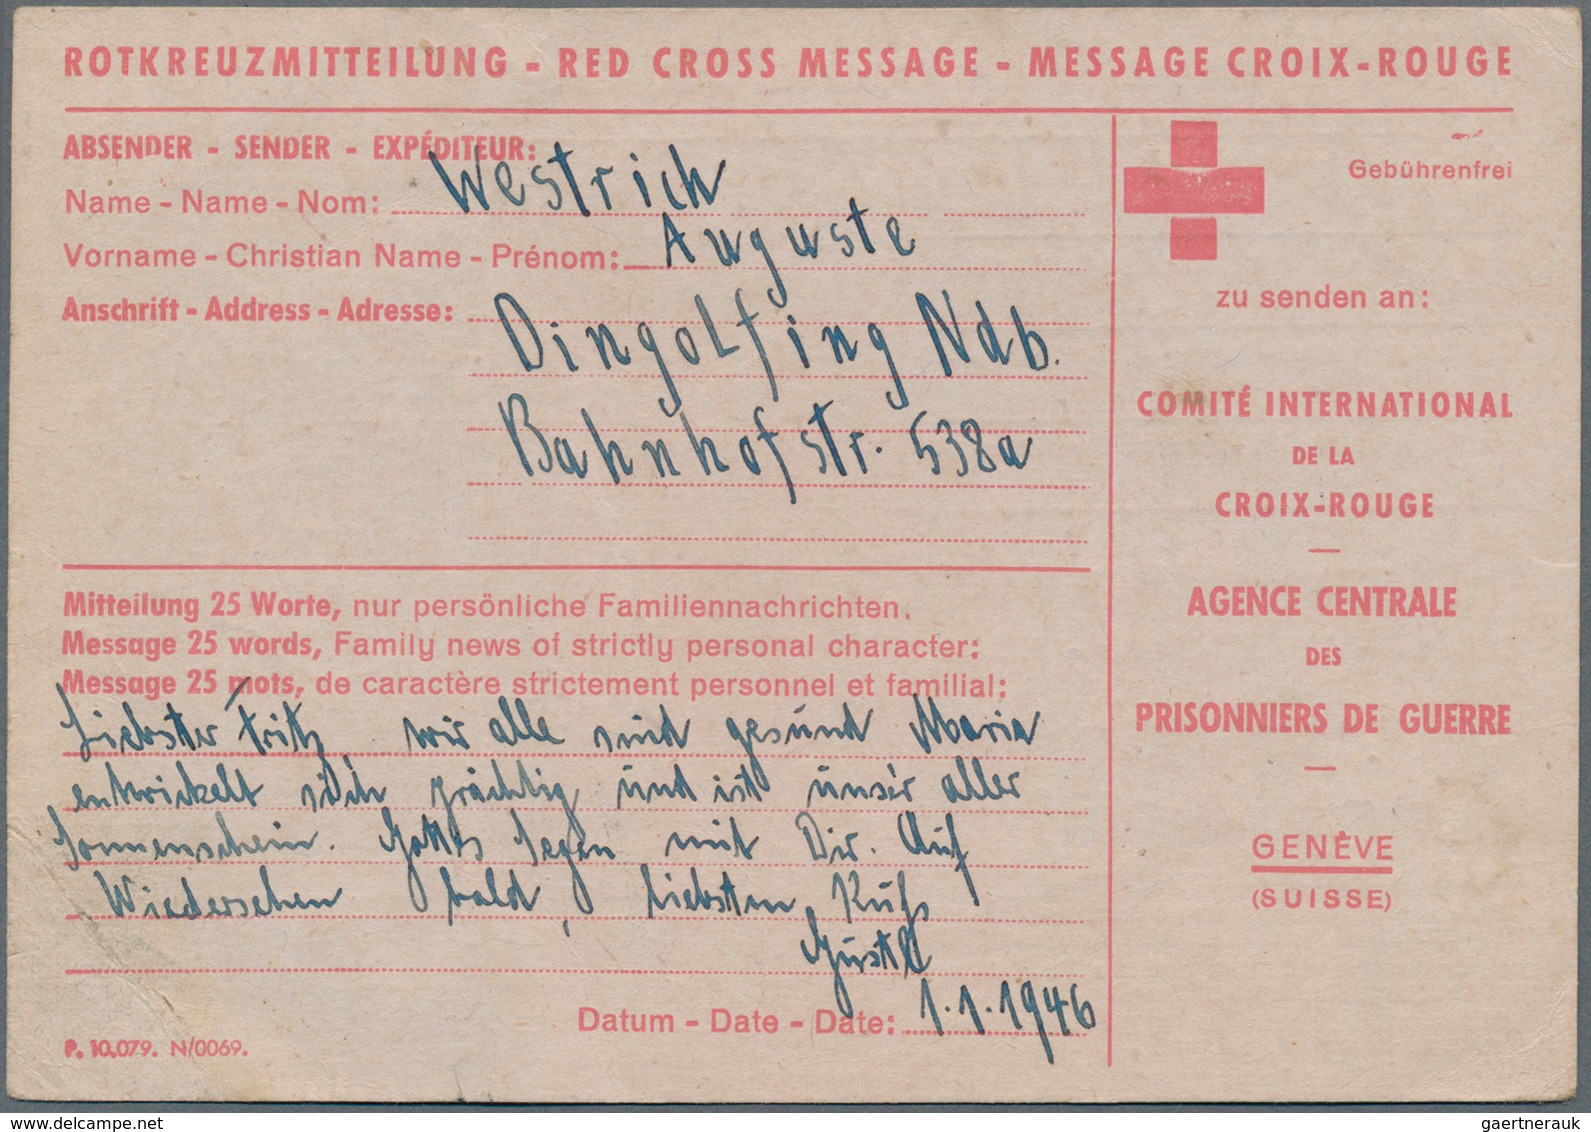 ROTKREUZMITTEILUNG - RED CROSS MESSAGE - MESSAGE CROIX-ROUGE
ABSENDER - SENDER - EXPÉDITEUR:
Name - Name - Nom: Westrich
Vorname - Christian Name - Prénom: Auguste
Anschrift - Address - Adresse: Dingolfing Ndb.
Bahnhofstr. 538a
Mitteilung 25 Worte, nur persönliche Familiennachrichten.
Message 25 words, Family news of strictly personal character:
Message 25 mots, de caractère strictement personnel et familial:
Liebster Fritz, wir alle sind gesund Maria
entwickelt sich prächtig und ist unser aller
Sonnenschein. Gottes Segen mit Dir. Auf
Wiedersehen bald, liebsten Kuß
Gustl
Datum - Date - Date: 1.1.1946
P. 10.079. N/0069.
Gebührenfrei
zu senden an:
COMITÉ INTERNATIONAL
DE LA
CROIX-ROUGE
AGENCE CENTRALE
DES
PRISONNIERS DE GUERRE
GENÈVE
(SUISSE)
gaertnerauk